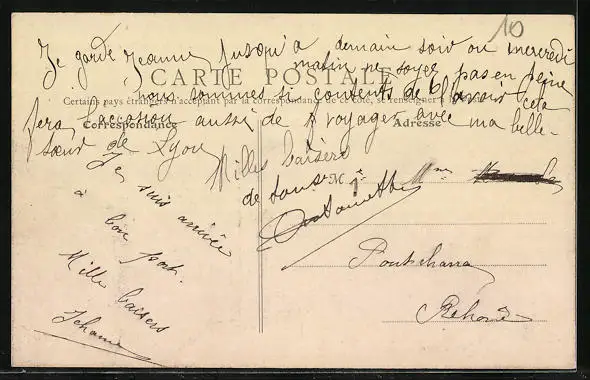 10
Je garde Jeanne jusqu'à demain soir ou mercredi
matin ne soyez pas en peine
CARTE POSTALE
nous sommes si contents de l'avoir cela
Certains pays étrangers n'acceptant pas la correspondance de ce côté, se renseigner à la
fera l'occasion aussi de voyager avec ma belle-
Correspondance
Adresse
sœur de Lyon
Milles baisers
de tous
Antoinette
Je suis arrivée
à bon port.
Mille baisers
Jehanne
M
Mme
Pontcharra
Rhône